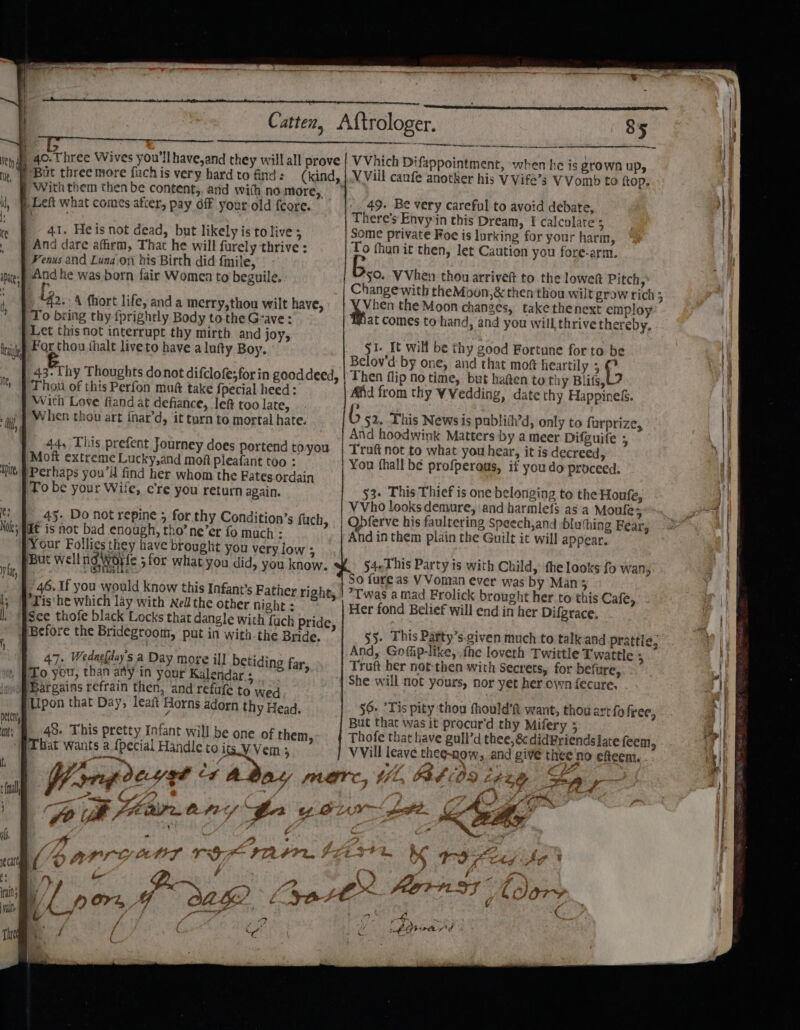 Catten, Aſtrologer. 85
40. Three Wives you'll have, and they will all prove
But three more ſuch is very hard to find: (kind,
With them then be content, and wiſh no more,
Left what comes after, pay off your old ſcore.
41. He is not dead, but likely is to live;
And dare affirm, That he will ſurely thrive:
Venus and Luna on his Birth did ſmile,
And he was born fair Women to beguile.
42. A ſhort life, and a merry, thou wilt have,
To bring thy ſprightly Body to the Grave:
Let this not interrupt thy mirth and joy,
For thou ſhalt live to have a luſty Boy.
43. Thy Thoughts do not diſcloſe; for in good deed,
Thou of this Perſon muſt take ſpecial heed:
With Love ſtand at defiance, left too late,
When thou art ſnar'd, it turn to mortal hate.
44. This preſent Journey does portend to you
Moſt extreme Lucky, and moſt pleaſant too:
Perhaps you'll find her whom the Fates ordain
To be your Wife, e're you return again.
45. Do not repine; for thy Condition's ſuch,
It is not bad enough, tho' ne'er ſo much:
Your Follies they have brought you very low;
But well for what you did, you know.
46. If you would know this Infant's Father right,
'Tis he which lay with Nell the other night:
See thoſe black Locks that dangle with ſuch pride,
Before the Bridegroom, put in with the Bride.
47. Wedneſday's a Day more ill betiding far,
To you, than any in your Kalendar;
Bargains refrain then, and refuſe to wed
Upon that Day, leaſt Horns adorn thy Head.
48. This pretty Infant will be one of them,
That wants a ſpecial Handle to its VVem;
VVhich Diſappointment, when he is grown up,
VVill cauſe another his VVife's VVomb to ſtop.
49. Be very careful to avoid debate,
There's Envy in this Dream, I calculate;
Some private Foe is lurking for your harm,
To ſhun it then, let Caution you fore-arm.
50. VVhen thou arriveſt to the loweſt Pitch,
Change with the Moon, & then thou wilt grow rich;
VVhen the Moon changes, take the next employ
That comes to hand, and you will thrive thereby.
51. It will be thy good Fortune for to be
Belov'd by one, and that moſt heartily;
Then ſlip no time, but haſten to thy Bliſs,
And from thy VVedding, date thy Happineſs.
52. This News is publiſh'd, only to ſurprize,
And hoodwink Matters by a meer Diſguiſe;
Truſt not to what you hear, it is decreed,
You ſhall be proſperous, if you do proceed.
53. This Thief is one belonging to the Houſe,
VVho looks demure, and harmleſs as a Mouſe;
Obſerve his faultering Speech, and bluſhing Fear,
And in them plain the Guilt it will appear.
54. This Party is with Child, ſhe looks ſo wan,
So ſure as VVoman ever was by Man;
'Twas a mad Frolick brought her to this Caſe,
Her fond Belief will end in her Diſgrace.
55. This Party's given much to talk and prattle,
And, Goſſip-like, ſhe loveth Twittle Twattle;
Truſt her not then with Secrets, for before,
She will not yours, nor yet her own ſecure.
56. 'Tis pity thou ſhould'ſt want, thou art ſo free,
But that was it procur'd thy Miſery;
Thoſe that have gull'd thee, & did Friends late ſeem,
VVill leave thee now, and give thee no eſteem.
a Day more, ill
To any
refrain
Upon Horns